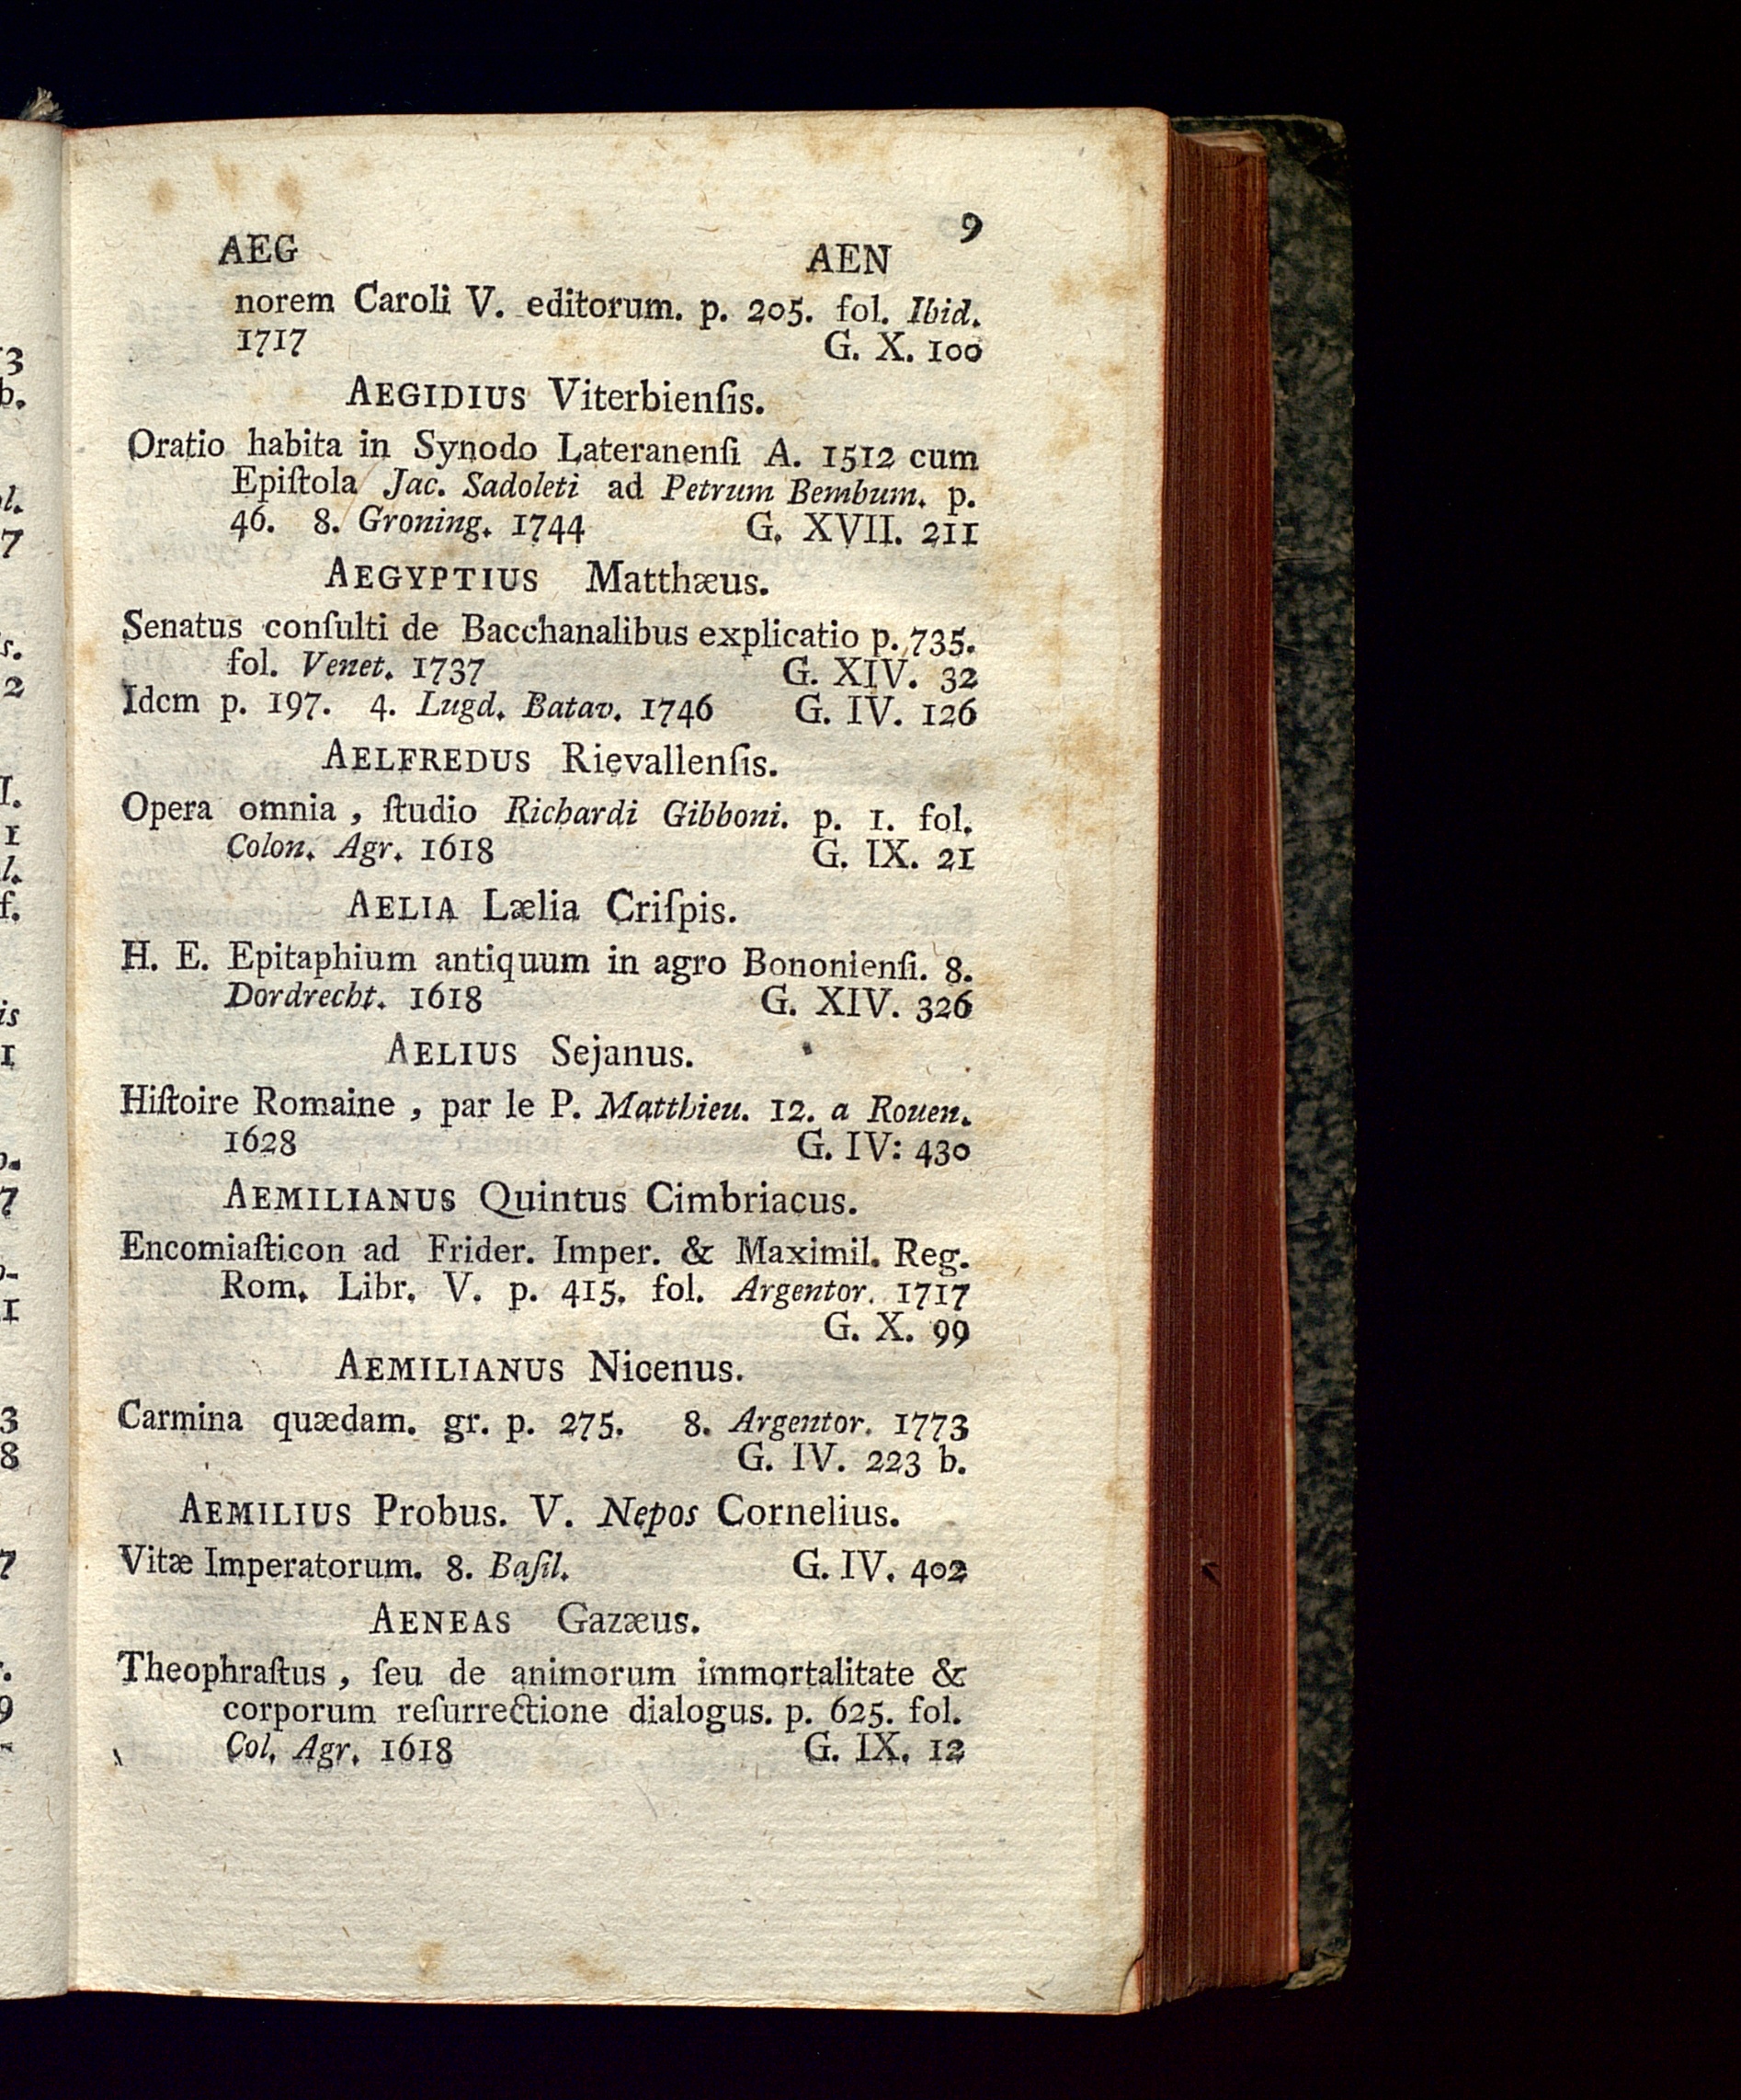 9
AEG AEN
norem Caroli V. editorum. p. 205. fol. Ibid.
1717 G. X. 100
AEGIDIUS Viterbienſis.
Oratio habita in Synodo Lateranenſi A. 1512 cum
Epiſtola Jac. Sadoleti ad Petrum Bembum. p.
46. 8. Groning. 1744 G. XVII. 211
AEGYPTIUS Matthæus.
Senatus conſulti de Bacchanalibus explicatio p. 735.
fol. Venet. 1737 G. XIV. 32
Idem p. 197. 4. Lugd. Batav. 1746 G. IV. 126
AELFREDUS Rievallenſis.
Opera omnia, ſtudio Richardi Gibboni. p. 1. fol.
Colon. Agr. 1618 G. IX. 21
AELIA Lælia Criſpis.
H. E. Epitaphium antiquum in agro Bononienſi. 8.
Dordrecht. 1618 G. XIV. 326
AELIUS Sejanus.
Hiſtoire Romaine, par le P. Matthieu. 12. a Rouen.
1628 G. IV: 430
AEMILIANUS Quintus Cimbriacus.
Encomiaſticon ad Frider. Imper. & Maximil. Reg.
Rom. Libr. V. p. 415. fol. Argentor. 1717
G. X. 99
AEMILIANUS Nicenus.
Carmina quædam. gr. p. 275. 8. Argentor. 1773
G. IV. 223 b.
AEMILIUS Probus. V. Nepos Cornelius.
Vitæ Imperatorum. 8. Baſil. G. IV. 402
AENEAS Gazæus.
Theophraſtus, ſeu de animorum immortalitate &
corporum reſurrectione dialogus. p. 625. fol.
Col. Agr. 1618 G. IX. 12